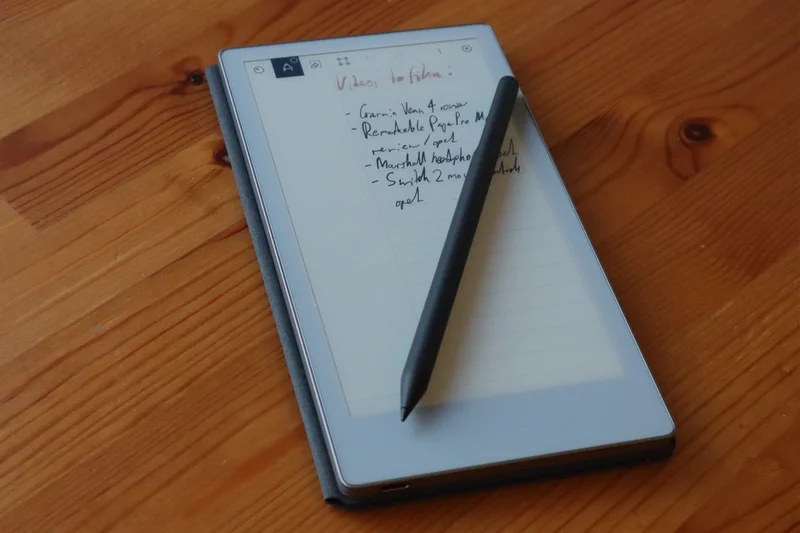 Videos to film:
- Garmin Venu 4 review
- Remarkable Page Pro M
review/opel
- Marshall
- Switch 2
opel